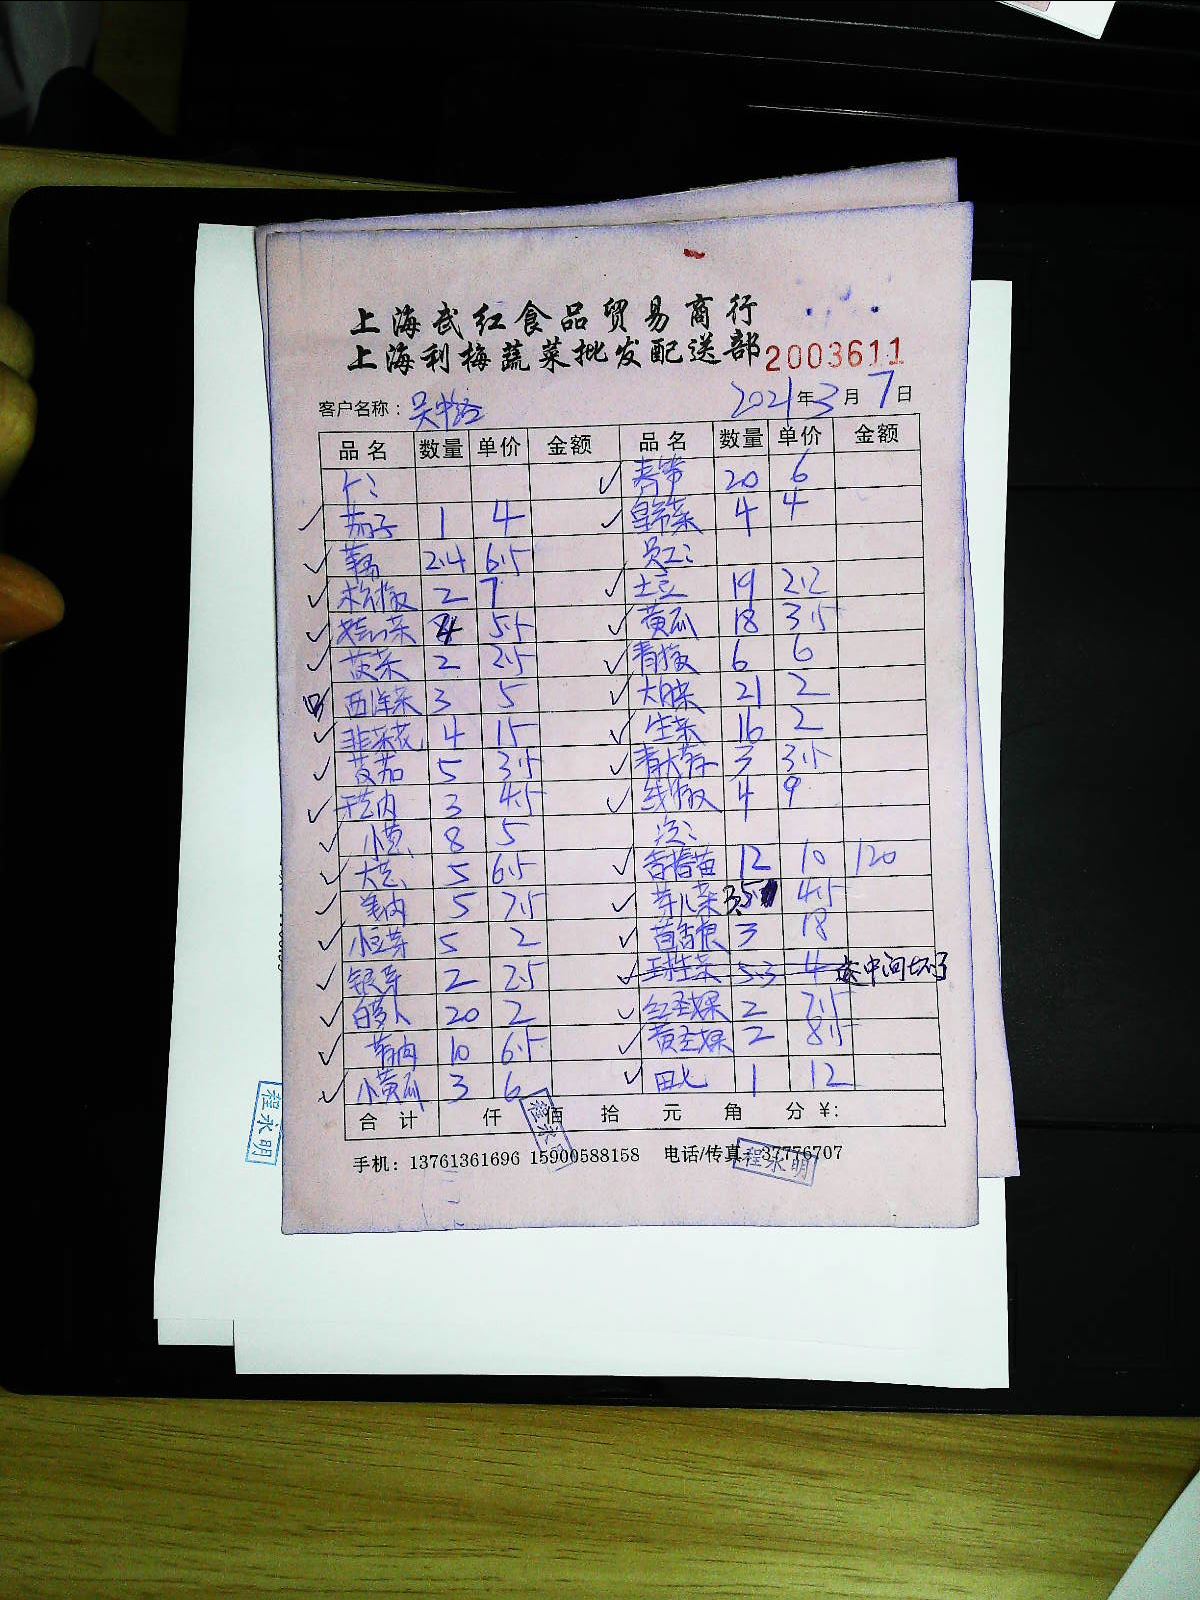 上海武红食品贸易商行
上海利梅蔬菜批发配送部 2003611
客户名称: 吴中路 2021年3月7日
品名 数量 单价 金额 品名 数量 单价 金额
20 6
茄子 1 4 4 4
2.4 6.5 员工:
2 7 土豆 19 2.2
4 5.5 黄瓜 18 3.5
2 2.5 青椒 6 6
西洋菜 3 5 大白菜 21 2
韭菜花 4 15 生菜 16 2
5 3.5 3 3.5
3 4.5 线椒 4 9
小葱 8 5
大葱 5 6.5 香椿苗 12 10 120
5 7.5 芽儿菜 3.5 4.5
小豆芽 5 2 茴香根 3 18
银芽 2 2.5 球生菜 5.3 4 中间坏了
白萝卜 20 2 红圣女果 2 7.5
10 6.5 黄圣女果 2 8.5
小黄瓜 3 6 田七 1 12
合计 仟 佰 拾 元 角 分 ¥:
手机: 13761361696 15900588158 电话/传真: 37776707
程永明
程永明
程永明